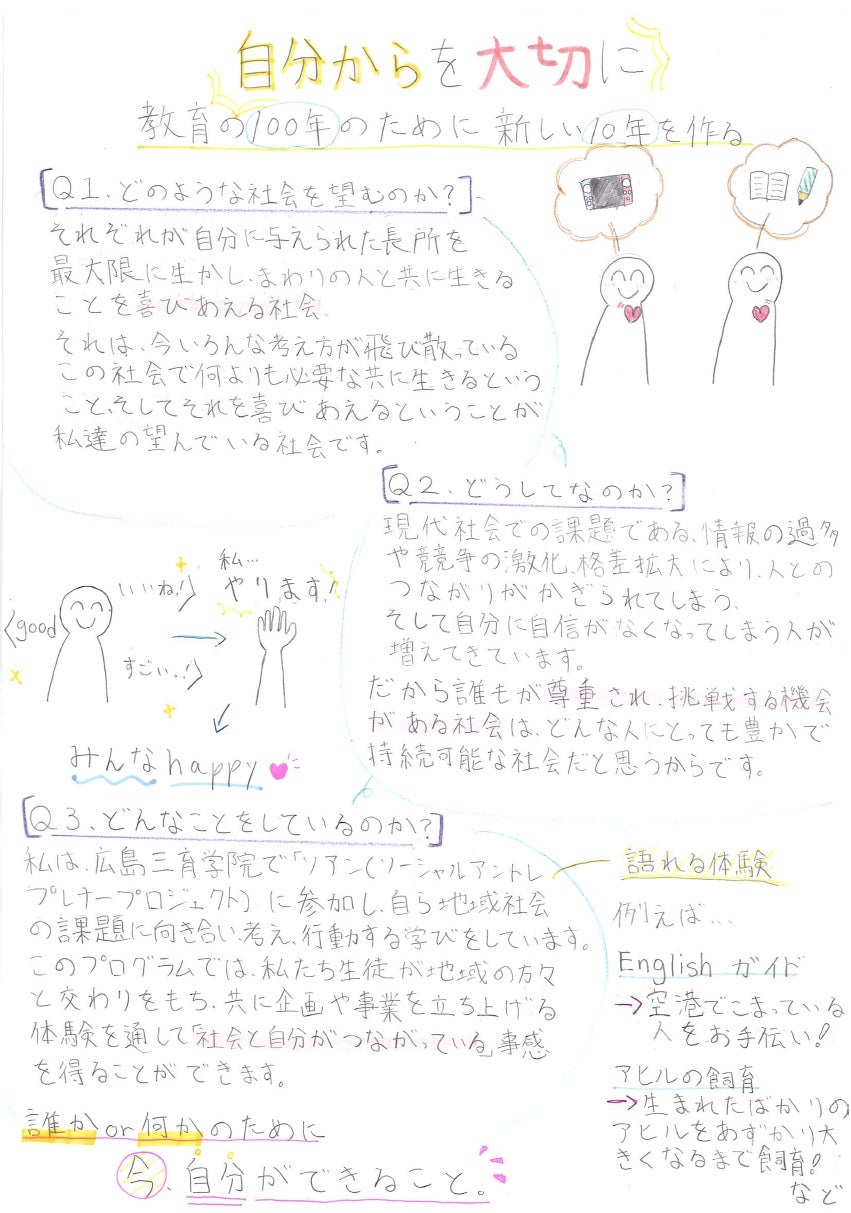 自分からを大切に
教育の100年のために 新しい10年を作る
[Q1.どのような社会を望むのか?]
それぞれが自分に与えられた長所を
最大限に生かし、まわりの人と共に生きる
ことを喜びあえる社会、
それは、今いろんな考え方が飛び散っている
この社会で何よりも必要な共に生きるという
こと、そしてそれを喜びあえるということが
私達の望んでいる社会です。
[Q2.どうしてなのか?]
現代社会での課題である、情報の過多
や競争の激化、格差拡大により、人との
つながりがかぎられてしまう、
そして自分に自信がなくなってしまう人が
増えてきています。
だから誰もが尊重され、挑戦する機会
がある社会は、どんな人にとっても豊かで
持続可能な社会だと思うからです。
good
いいね!
すごいっ!
私…
やります!
みんなhappy
[Q3.どんなことをしているのか?]
私は、広島三育学院で「ソアン(ソーシャルアントレ
プレナープロジェクト)に参加し、自ら地域社会
の課題に向き合い、考え、行動する学びをしています。
このプログラムでは、私たち生徒が地域の方々
と交わりをもち、共に企画や事業を立ち上げる
体験を通して「社会と自分がつながっている」事感
を得ることができます。
誰かor何かのために
今、自分ができること。
語れる体験
例えば…
English ガイド
→空港でこまっている
人をお手伝い!
アヒルの飼育
→生まれたばかりの
アヒルをあずかり大
きくなるまで飼育!
など